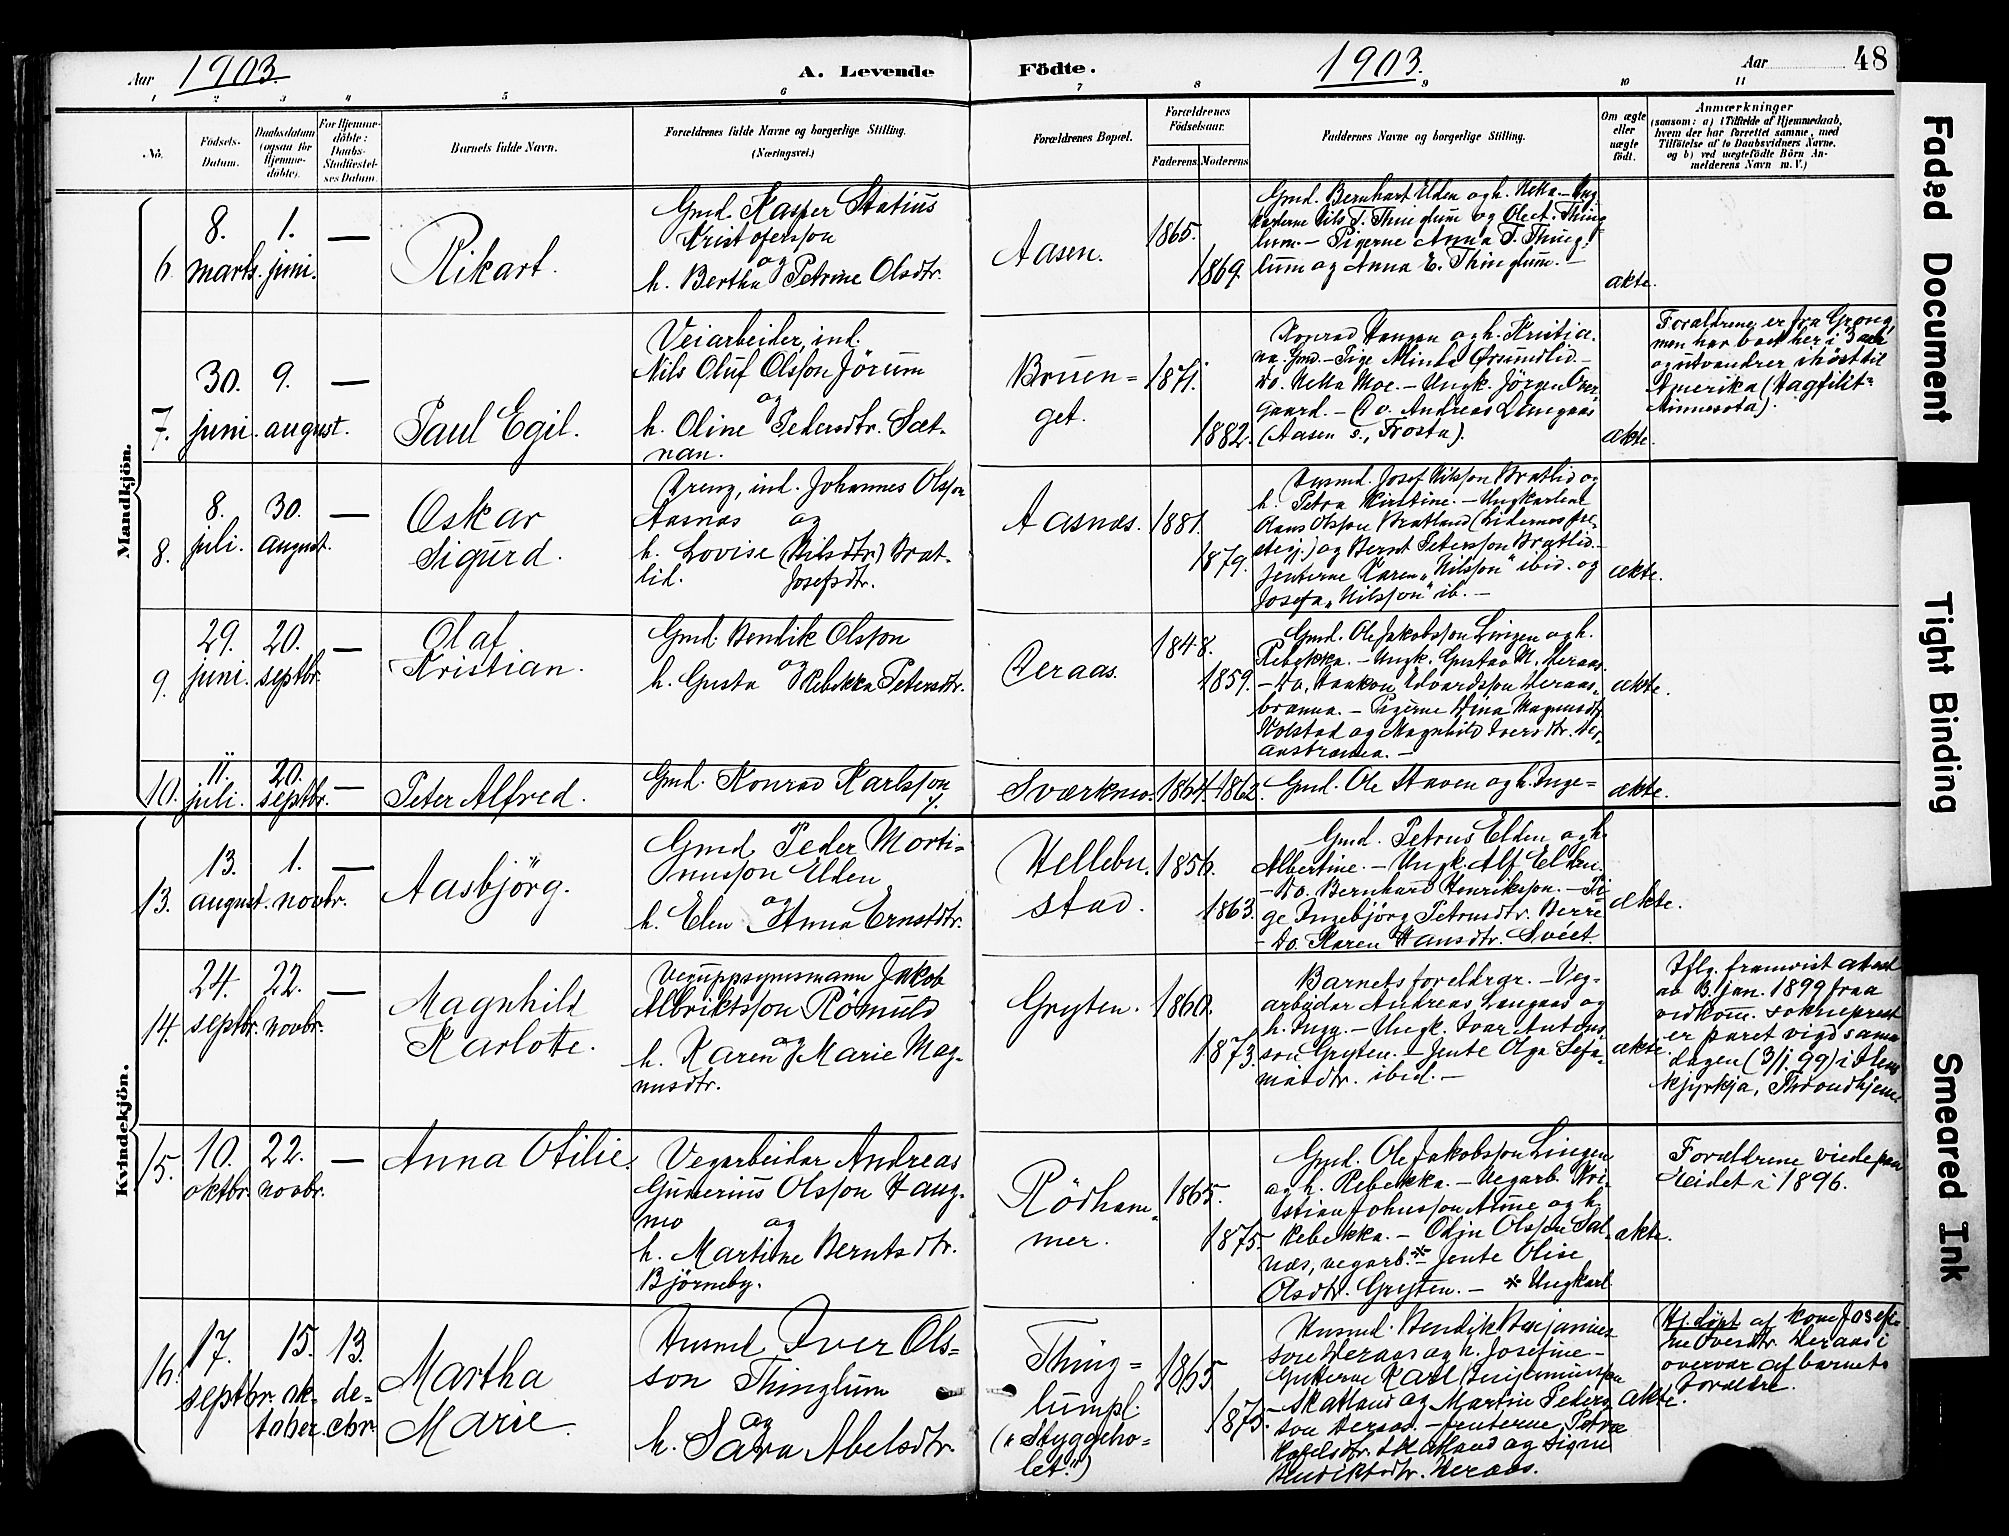 Aar 1903. A. Levende Födte. 1903. Aar 48
1 2 3 4 5 6 7 8 9 10 11
No.
Födsels-Datum.
Daabsdatum (ogsaa for Hjemme-döbte).
For Hjemme-döbte: Daabs-Stadfæstel-ses Datum.
Barnets fulde Navn.
Forældrenes fulde Navne og borgerlige Stilling.
(Næringsvei.)
Forældrenes Bopæl.
Forældrenes Födselsaar.
Faderens. Moderens.
Faddernes Navne og borgerlige Stilling.
Om ægte eller uægte födt.
Anmærkninger
(saasom: a) i Tilfælde af Hjemmedaab,
hvem der har forrettet samme, med
Tilföielse af to Daabsvidners Navne,
og b) ved uegtefödte Börn An-
melderens Navn m. V.)
Mandkjön.
6. 8. marts. 1. juni. — Rikart.
Gmd. Kasper Statius
Kristofersson
og
h. Bertha Petrine Olsdtr.
Aasen. 1865. 1869.
Gmd. Bernhart Elden og h. Mekka. — Ung-
karlerne Nils T. Thinglum og Ole A. Thing-
lum. — Pigerne Anna T. Thing-
lum og Anna E. Thinglum. —
ækte.
7. 30. juni. 9. august. — Paul Egil.
Veiarbeider, ind.
Nils Oluf Olsson Jörum
og
h. Oline Pedersdtr. Sæt-
nan.
Bruen-
get. 1871. 1882.
Konrad Hansen og h. Kristia-
na. Gmd. — Pige Minda Grundlid —
Do. Mekka Moe. — Ungk. Jörgen Over-
gaard. — Do. Andreas Langaas
(Aasen s., Frosta).
ækte.
Forældrene er fra Grong,
men har boet her i 3 aar
og utvandrer i höst til
Amerika (Hagfilit-
Minnesota).
8. 8. juli. 30. august. — Oskar
Sigurd.
Dreng, ind. Johannes Olsson
Aasnæs og
h. Lovise (Nilsdtr.) Brat-
lid. Josefsdtr.
Aasnæs. 1881. 1879.
Husmd. Josef Nilsson Bratlid og
h. Petra Kirstine. — Ungkarlene
Hans Olsson Bratland (Lidernes pre-
stegj.) og Bernt Petersson Bratlid. —
Jenterne Karen „Nilsson" ibid. og
Josefa „Nilsson" ib. —
ækte.
9. 29. juni. 20. septbr. — Olaf
Kristian.
Gmd. Bendik Olsson
og
h. Gusta Rebekka Petersdtr.
Deraas. 1848. 1859.
Gmd. Ole Jakobsson Lingen og h.
Rebekka. — Ungk. Gustav M. Deraas.
— Do. Haakon Edvardsson Deraas-
brænna. — Pigerne Dina Magnusdtr.
Kolstad og Magnhild Iversdtr. Der-
aasbrænna. —
ækte.
10. 11. juli. 20. septbr. — Peter Alfred.
Gmd. Konrad Karlsson ./.
Sværkmo. 1864. 1862.
Gmd. Ole Staven og h. Inge=
ækte.
Kvindekjön.
13. 13. august. 1. novbr. — Aasbjörg.
Gmd Peder Morti-
nusson Elden
og
h. Elen Anna Ernstdtr.
Hellebu-
stad. 1856. 1863.
Gmd. Petrus Elden og h.
Albertine. — Ungk. Alf Elden.
— Do. Bernhard Henriksson. — Pi-
ge Ingebjörg Petrusdtr. Berre
— Do. Karen Hansdtr. Sveet.
ækte.
14. 24. septbr. 22. novbr. — Magnhild
Karlotte.
Veiuppsynsmann Jakob
Albriktsson Römuld
og
h. Karen Marie Mag-
nusdtr.
Gryten. 1860. 1873.
Barnets foreldrar. — Veg-
arbeidar Andreas Langaas og
h. Inga. — Ungk. Ivar Antons-
son Gryten. — Jente Olga Sefa-
niasdtr. ibid. —
ækte.
Iflg. framvist atest
av 3. jan. 1899 fraa
vidkom. sokneprest
er paret vigd sama
dagen (3/1. 99) i Ilens
kjyrkja, Throndhjem.
15. 10. oktbr. 22. novbr. — Anna Otilie.
Vegarbeidar Andreas
Gunerius Olsson Haug-
mo og
h. Martine Berntsdtr.
Björneby.
Rödham-
mer. 1865. 1875.
Gmd. Ole Jakobsson Lingen
og h. Rebekka. — Vegarb. Kri-
stian Johnsson Aune og h.
Rebekka. — Odin Olsson Sal-
næs, vegarb.* — Jente Olise
Olsdtr. Gryten. — * Ungkarl
ækte.
Forældrene viede paa
Eidet i 1896.
16. 17. septbr. 15. oktober. 13. decbr. Martha
Marie.
Husmd Iver Ols-
son Thinglum
og
h. Sara Abelsdtr.
Thing-
lumpl.
(„Styggeho-
let.") 1865 1875.
Husmd. Bendik Benjamins-
son Deraas og h. Josefine —
Gutterne Karl Benjaminsson
Skatland og Martin Peders-
son Deraas. — Jenterne Petra
Skatland og Signe
Bendiktsdtr. Deraas.
ækte.
Hj.döpt af kone Josefi-
ne Oversdtr. Deraas i
overvær af barnets
Forældre.
Faded Document
Tight Binding
Smeared Ink